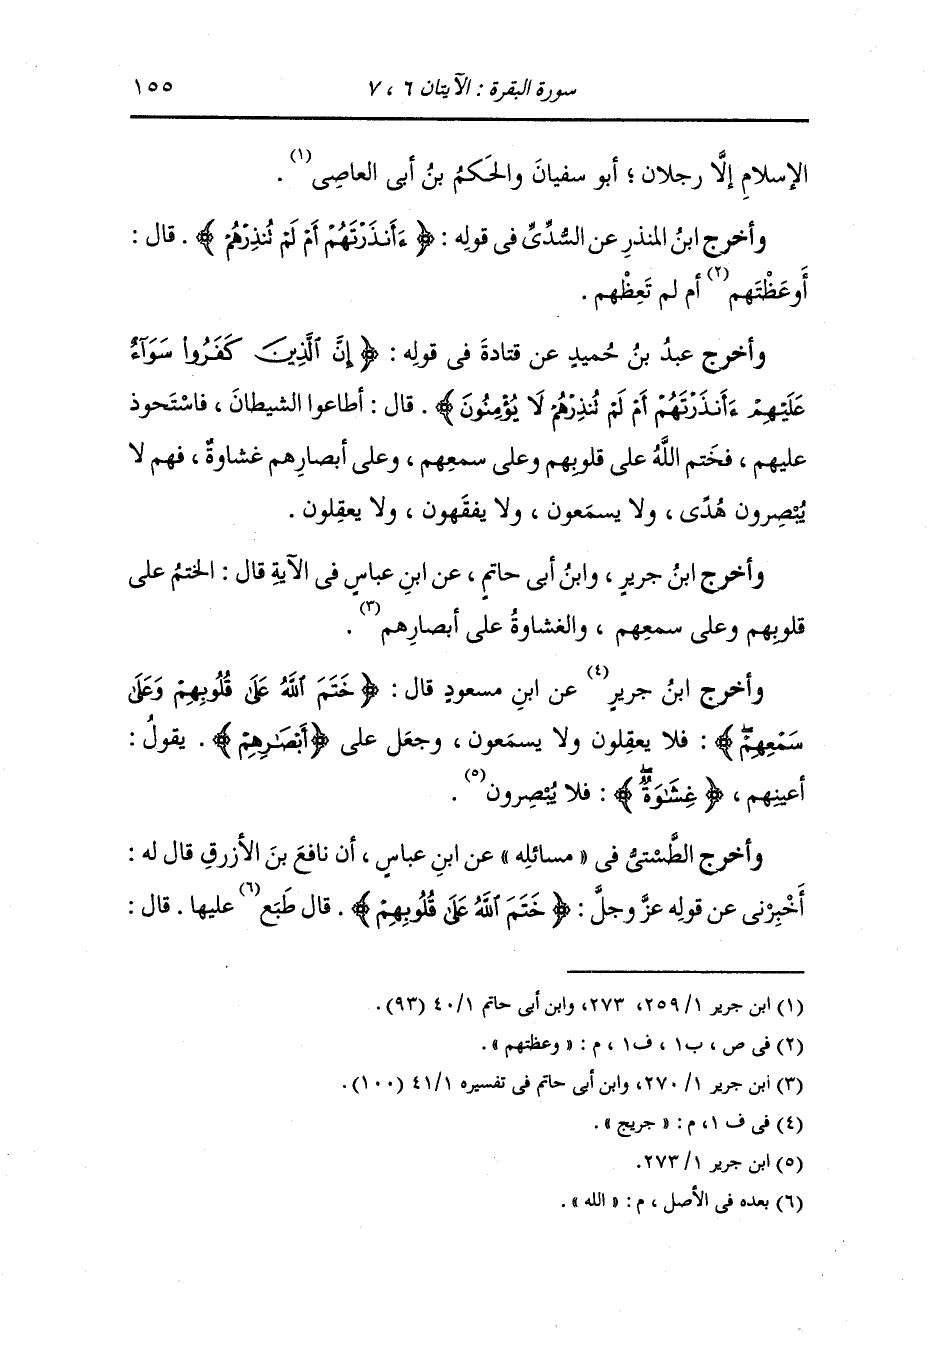 سورة البقرة : الآيتان ٦ ، ٧ ١٥٥
الإسلامِ إلَّا رجلان ؛ أبو سفيانَ والحَكمُ بنُ أبى العاصِى(١) .
وأخرج ابنُ المنذرِ عن السُّدِّىِّ فى قولِه : ﴿ ءَأَنذَرْتَهُمْ أَمْ لَمْ تُنذِرْهُمْ ﴾ . قال :
أَوعَظْتَهم(٢) أم لم تَعِظْهم .
وأخرج عبدُ بنُ حُميدٍ عن قتادةَ فى قولِه : ﴿ إِنَّ ٱلَّذِينَ كَفَرُوا۟ سَوَآءٌ
عَلَيْهِمْ ءَأَنذَرْتَهُمْ أَمْ لَمْ تُنذِرْهُمْ لَا يُؤْمِنُونَ ﴾ . قال : أطاعوا الشيطانَ ، فاسْتَحوذ
عليهم ، فخَتم اللَّهُ على قلوبِهم وعلى سمعِهم ، وعلى أبصارِهم غشاوةٌ ، فهم لا
يُبْصِرون هُدًى ، ولا يسمَعون ، ولا يفقَهون ، ولا يعقِلون .
وأخرج ابنُ جريرٍ ، وابنُ أبى حاتمٍ ، عن ابنِ عباسٍ فى الآيةِ قال : الختمُ على
قلوبِهم وعلى سمعِهم ، والغشاوةُ على أبصارِهم(٣) .
وأخرج ابنُ جريرٍ(٤) عن ابنِ مسعودٍ قال : ﴿ خَتَمَ ٱللَّهُ عَلَىٰ قُلُوبِهِمْ وَعَلَىٰ
سَمْعِهِمْۖ ﴾ : فلا يعقِلون ولا يسمَعون ، وجعَل على ﴿ أَبْصَٰرِهِمْ ﴾ . يقولُ :
أعينِهم ، ﴿ غِشَٰوَةٌۖ ﴾ : فلا يُبْصِرون(٥) .
وأخرج الطَّسْتىُّ فى « مسائلِه » عن ابنِ عباسٍ ، أن نافعَ بنَ الأزرقِ قال له :
أَخْبِرْنى عن قولِه عزَّ وجلَّ : ﴿ خَتَمَ ٱللَّهُ عَلَىٰ قُلُوبِهِمْ ﴾ . قال طَبَع(٦) عليها . قال :
(١) ابن جرير ١/ ٢٥٩، ٢٧٣، وابن أبى حاتم ٤٠/١ (٩٣).
(٢) فى ص ، ب١ ، ف١ ، م : « وعظتهم » .
(٣) ابن جرير ١/ ٢٧٠، وابن أبى حاتم فى تفسيره ٤١/١ (١٠٠).
(٤) فى ف ١، م : « جريج » .
(٥) ابن جرير ١/ ٢٧٣.
(٦) بعده فى الأصل ، م : « الله » .